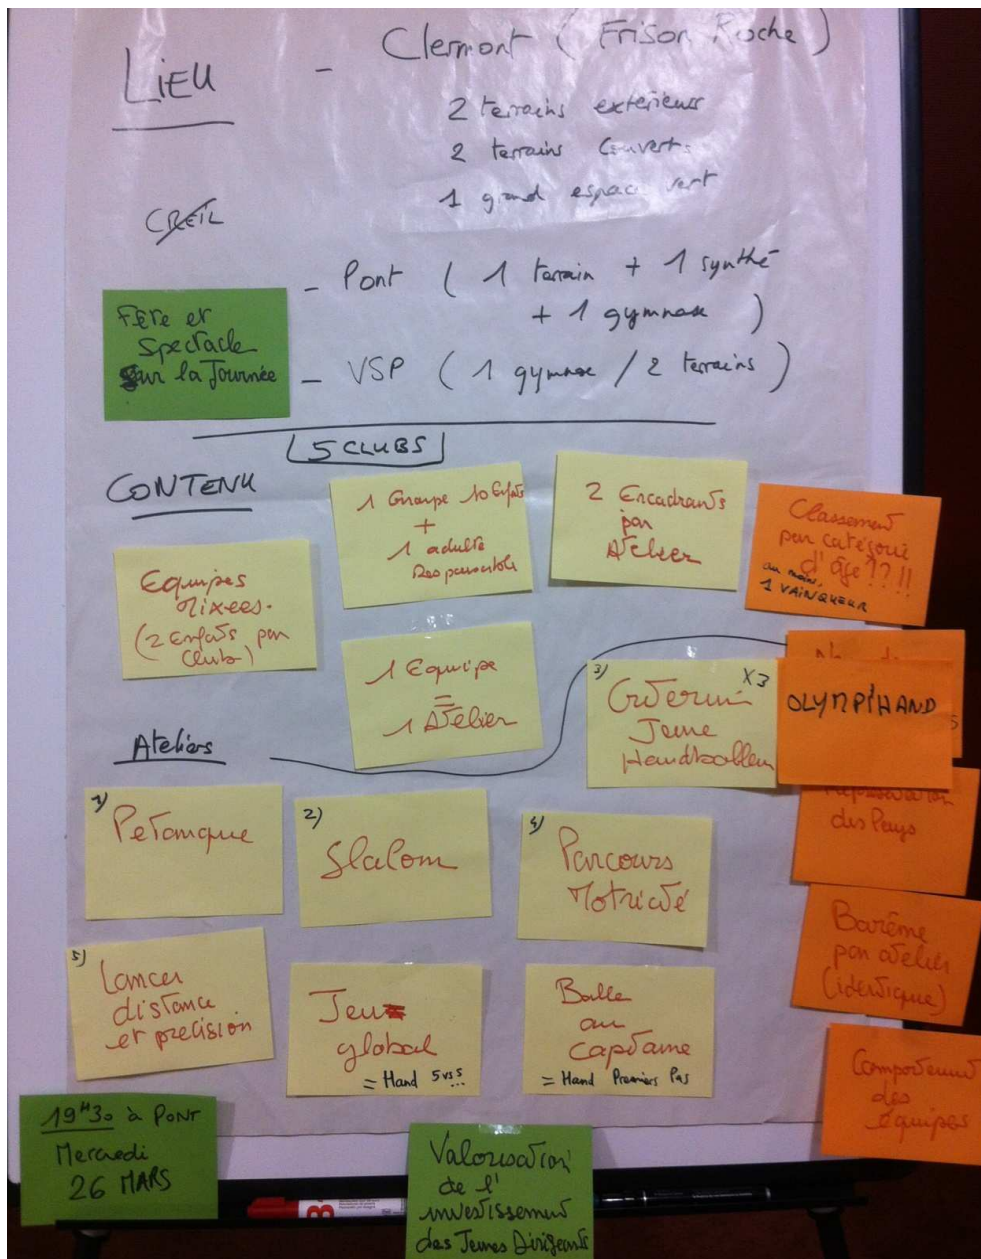 LIEU
- Clermont ( Frison Roche )
2 terrains extérieurs
2 terrains couverts
1 grand espace vert
CREIL
- Pont ( 1 terrain + 1 synthé
+ 1 gymnase )
Fête et
Spectacle
sur la Journée
- VSP ( 1 gymnase / 2 terrains )
5 CLUBS
CONTENU
1 Groupe 10 Enfts
+
1 adulte
Responsable
2 Encadrants
par
Atelier
Classement
par catégorie
d'âge ?? !!
au moins,
1 VAINQUEUR
Equipes
mixées.
(2 Enfats par
Club)
1 Equipe
=
1 Atelier
3)
X3
Criterium
Jeune
Handballeur
OLYMPIHAND
Ateliers
1)
Petanque
2)
Slalom
4)
Parcours
Motricité
Représentation
des Pays
5)
Lancer
distance
et precision
Jeu
global
= Hand 5 vs 5...
Balle
au
capitaine
= Hand Premiers Pas
Barême
par atelier
(identique)
Comportement
des
équipes
19H30 à PONT
Mercredi
26 MARS
Valorisation
de l'
investissement
des Jeunes Dirigeants